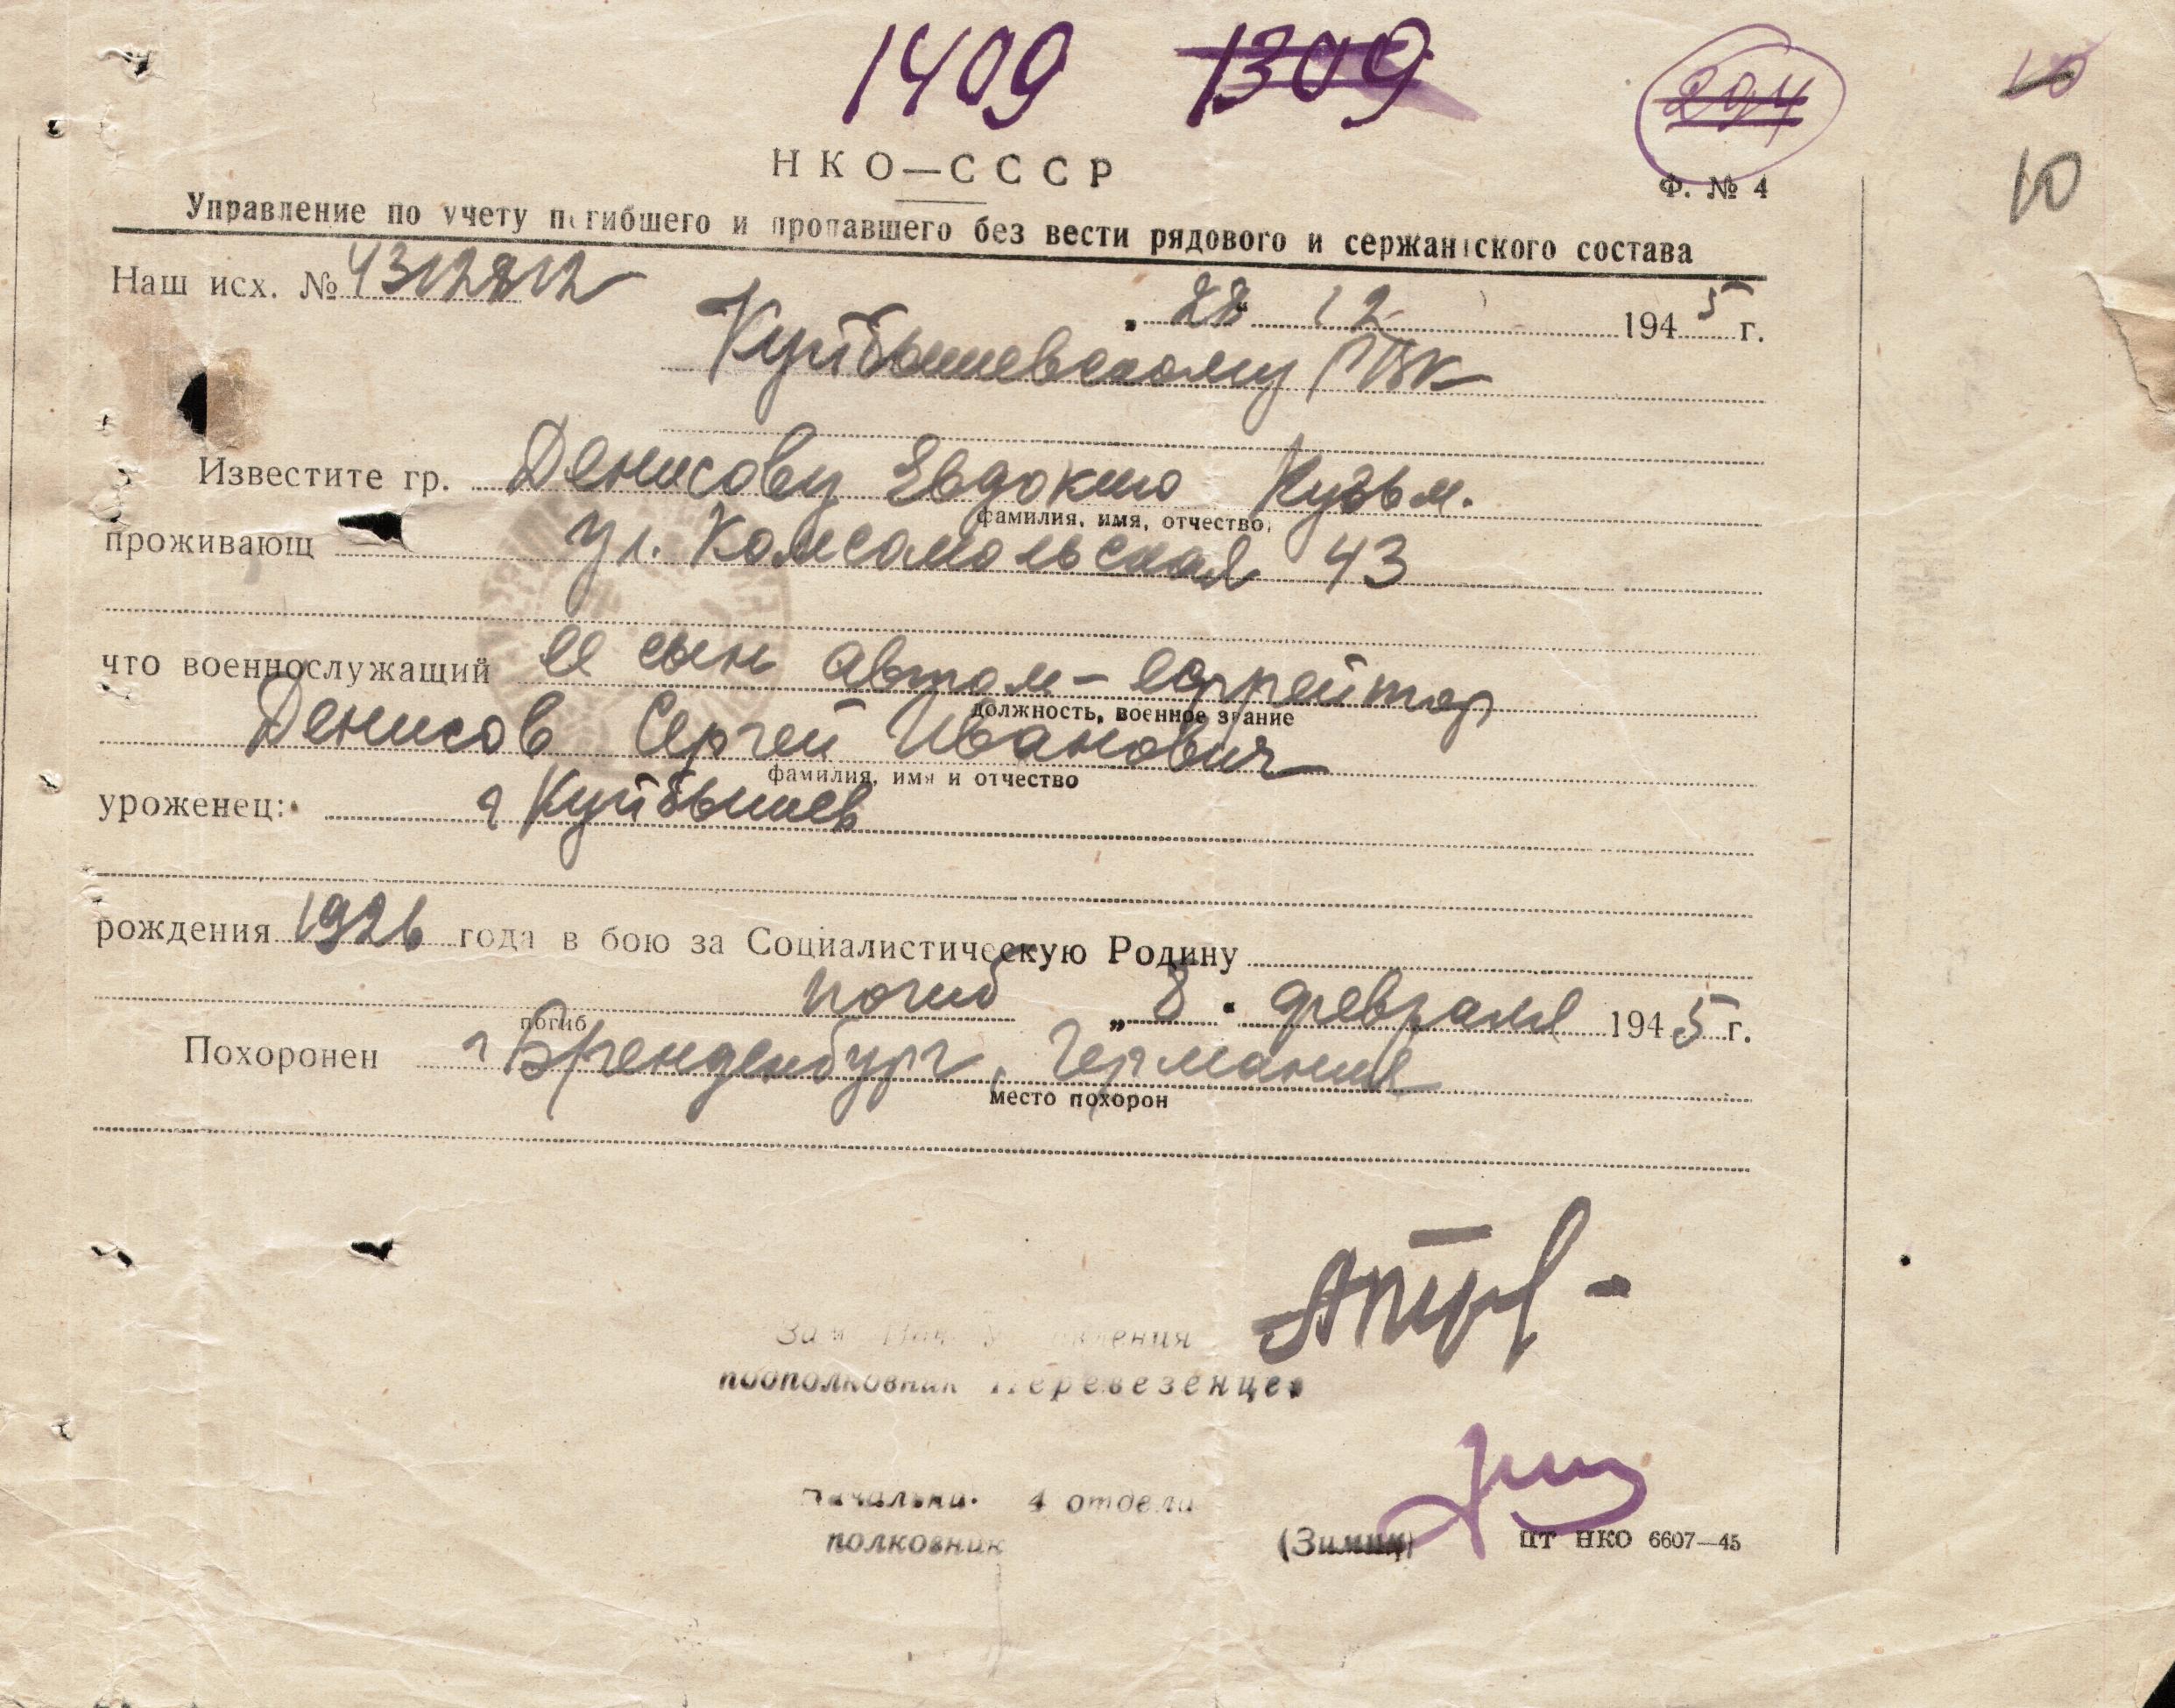 1409 1309 204 10
10
НКО—СССР
Ф. № 4
Управление по учету погибшего и пропавшего без вести рядового и сержантского состава
Наш исх. № 4312812
„28" 12 1945 г.
Куйбышевскому ГВК
Известите гр. Денисову Евдокию Кузьм.
фамилия, имя, отчество,
проживающ ул. Комсомольская 43
что военнослужащий ее сын автом-ефрейтор
должность, военное звание
Денисов Сергей Иванович
фамилия, имя и отчество
уроженец: г Куйбышев
рождения 1926 года в бою за Социалистическую Родину
погиб „8" февраля 1945 г.
погиб
Похоронен г Бренденбург, Германия
место похорон
Зам Нач Управления
подполковник Перевезенцев
Начальник 4 отдела
полковник (Зимин)
ЦТ НКО 6607—45